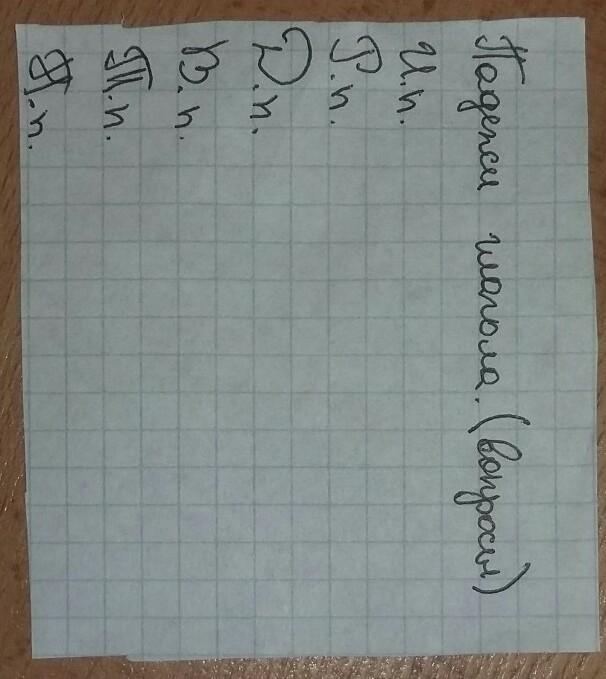 Падежи глагола. (вопросы)
И.п.
Р.п.
Д.п.
В.п.
Т.п.
П.п.